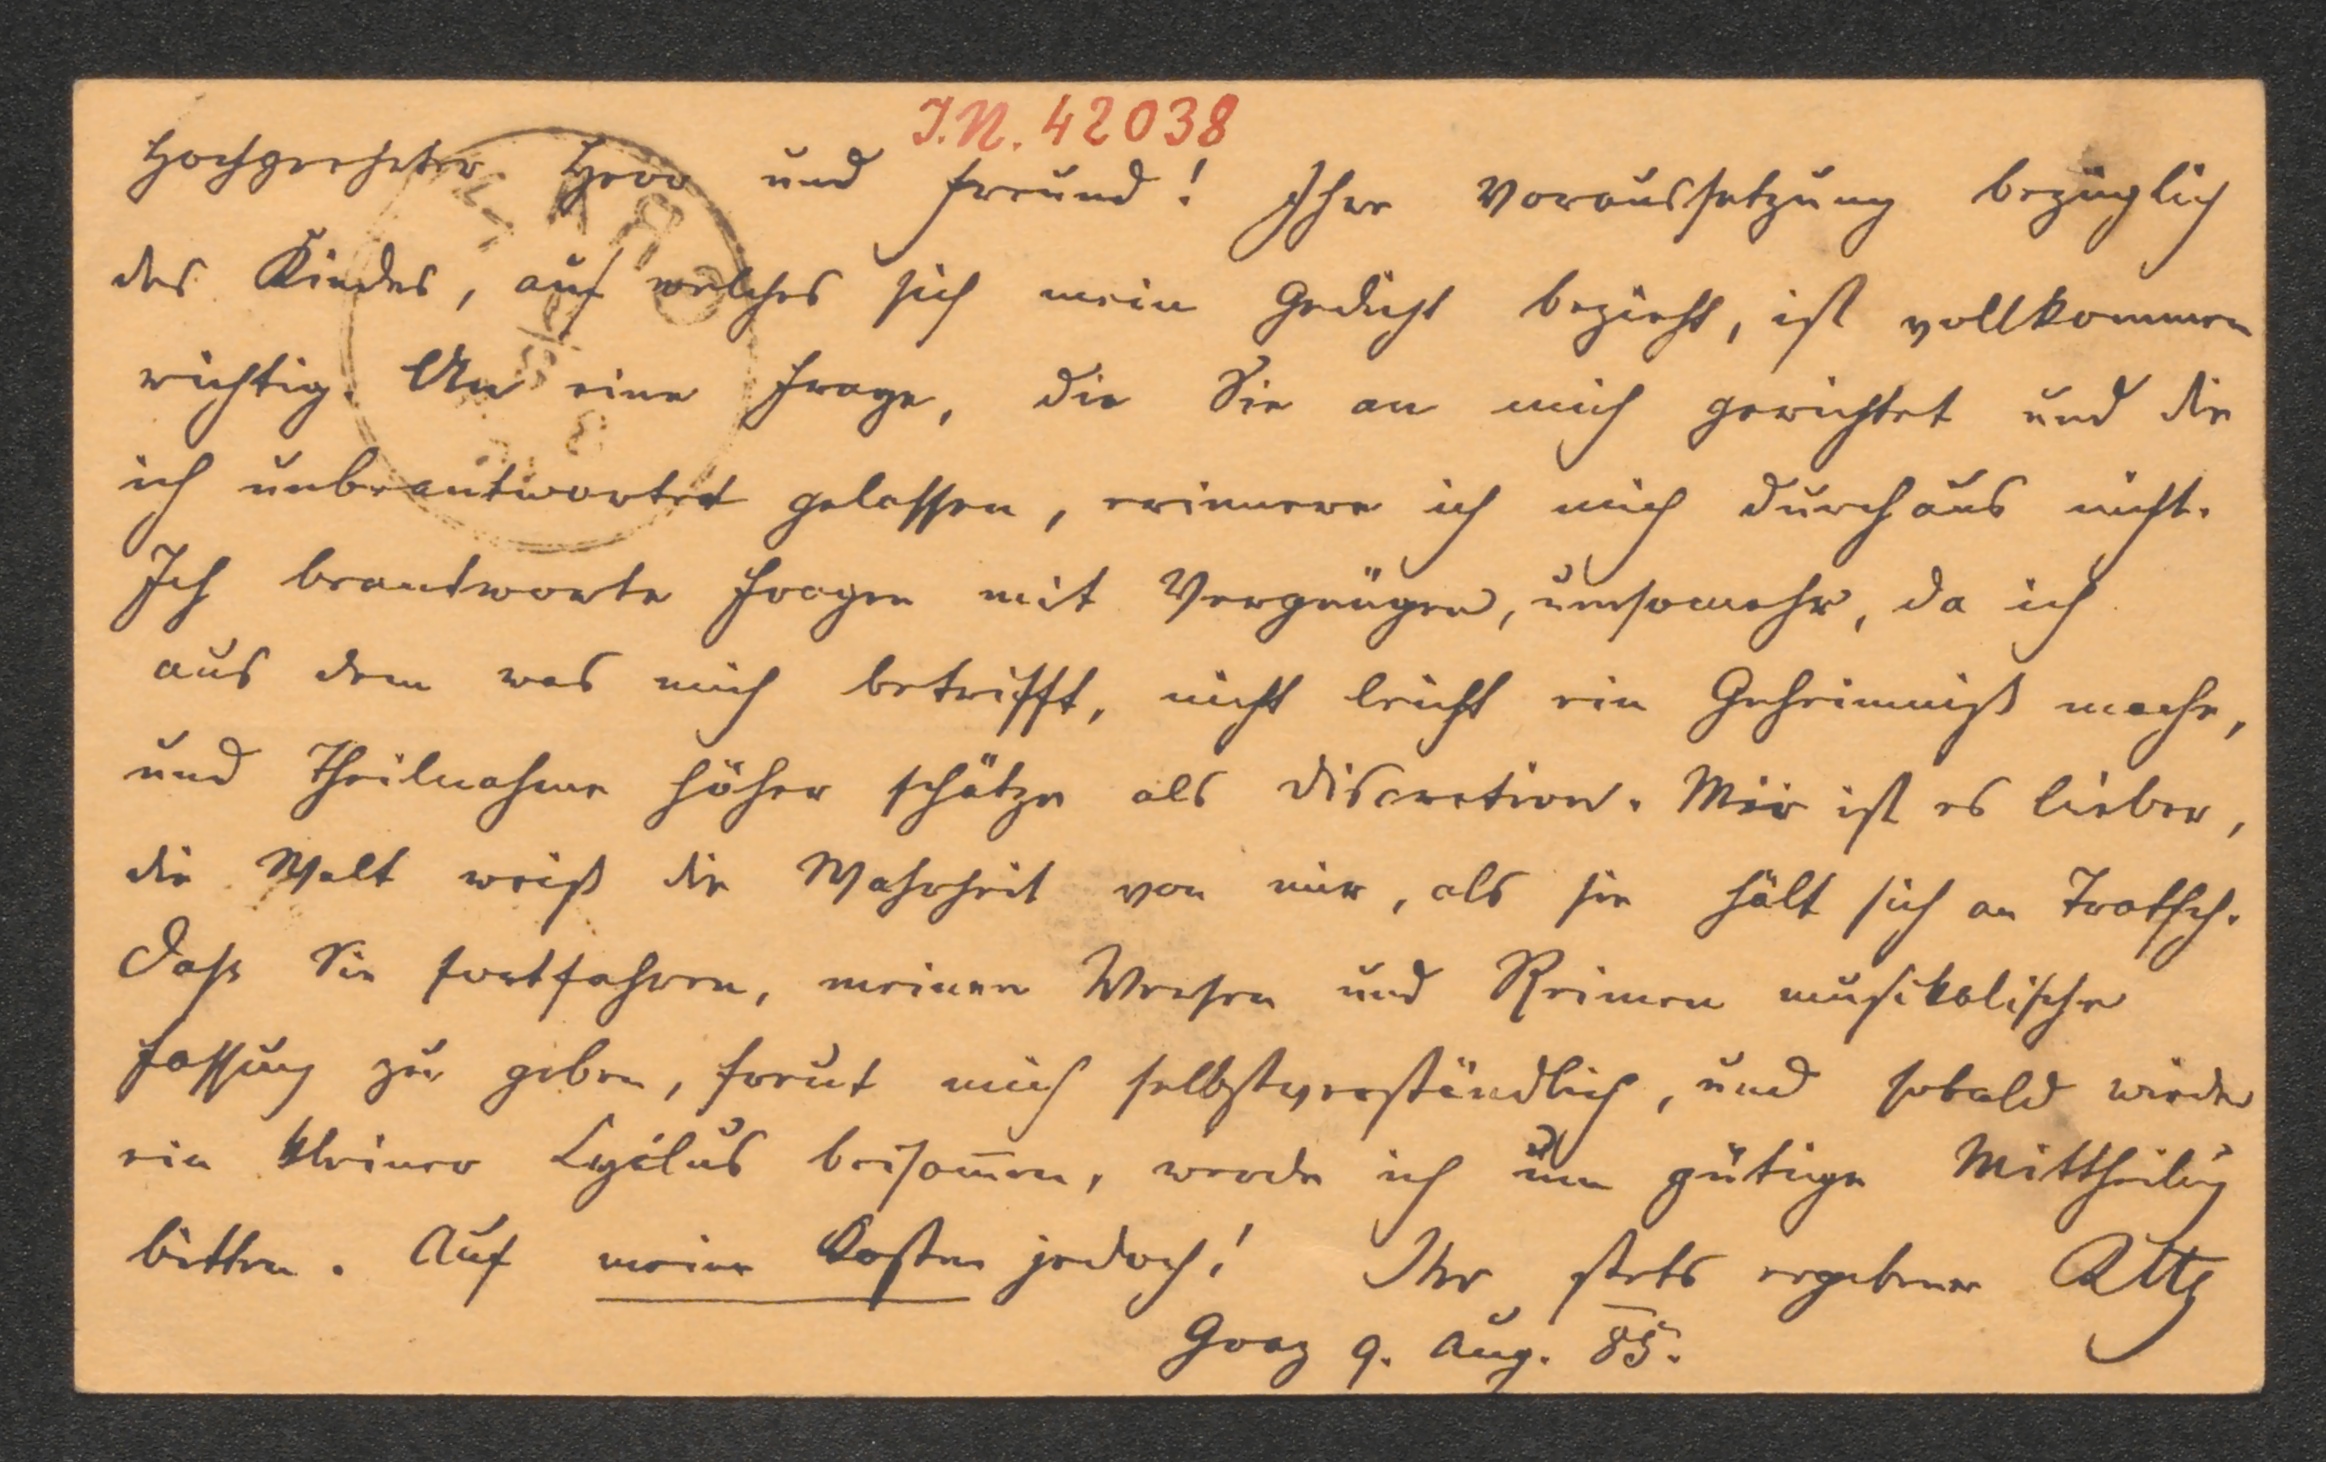 I.N. 42038
Hochgeehrter Herr und Freund! Ihre Voraussetzung bezüglich
des Kindes, auf welches sich mein Gedicht bezieht, ist vollkommen
richtig. An eine Frage, die Sie an mich gerichtet und die
ich unbeantwortet gelassen, erinnere ich mich durchaus nicht.
Ich beantworte Fragen mit Vergnügen, umsomehr, da ich
aus dem was mich betrifft, nicht leicht ein Geheimniß mache,
und Theilnahme höher schätze als Discretion. Mir ist es lieber,
die Welt weiß die Wahrheit von mir, als sie hält sich an Tratsch.
Daß Sie fortfahren, meinen Versen und Reimen musikalische
Fassung zu geben, freut mich selbstverständlich, und sobald wieder
ein kleiner Cyclus beisam̅en, werde ich um gütige Mittheilung
bitten. Auf meine Kosten jedoch! Ihr stets ergebener
Graz 9. Aug. 85.